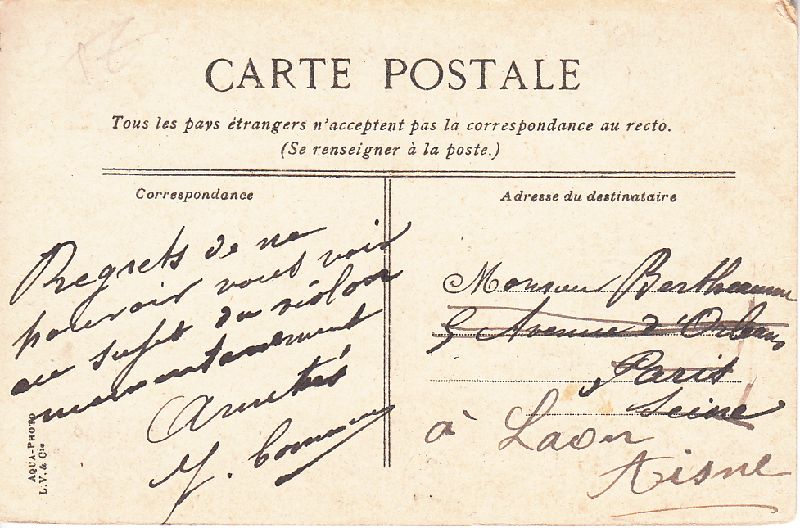 CARTE POSTALE
Tous les pays étrangers n'acceptent pas la correspondance au recto.
(Se renseigner à la poste.)
Correspondance
Adresse du destinataire
Regrets de ne
pouvoir vous voir
au sujet du violon
momentanément
Amitiés
Monsieur
5 Avenue d'Orléans
Paris
Seine
à Laon
Aisne
AQUA-PHOTO
L.V. & Cie